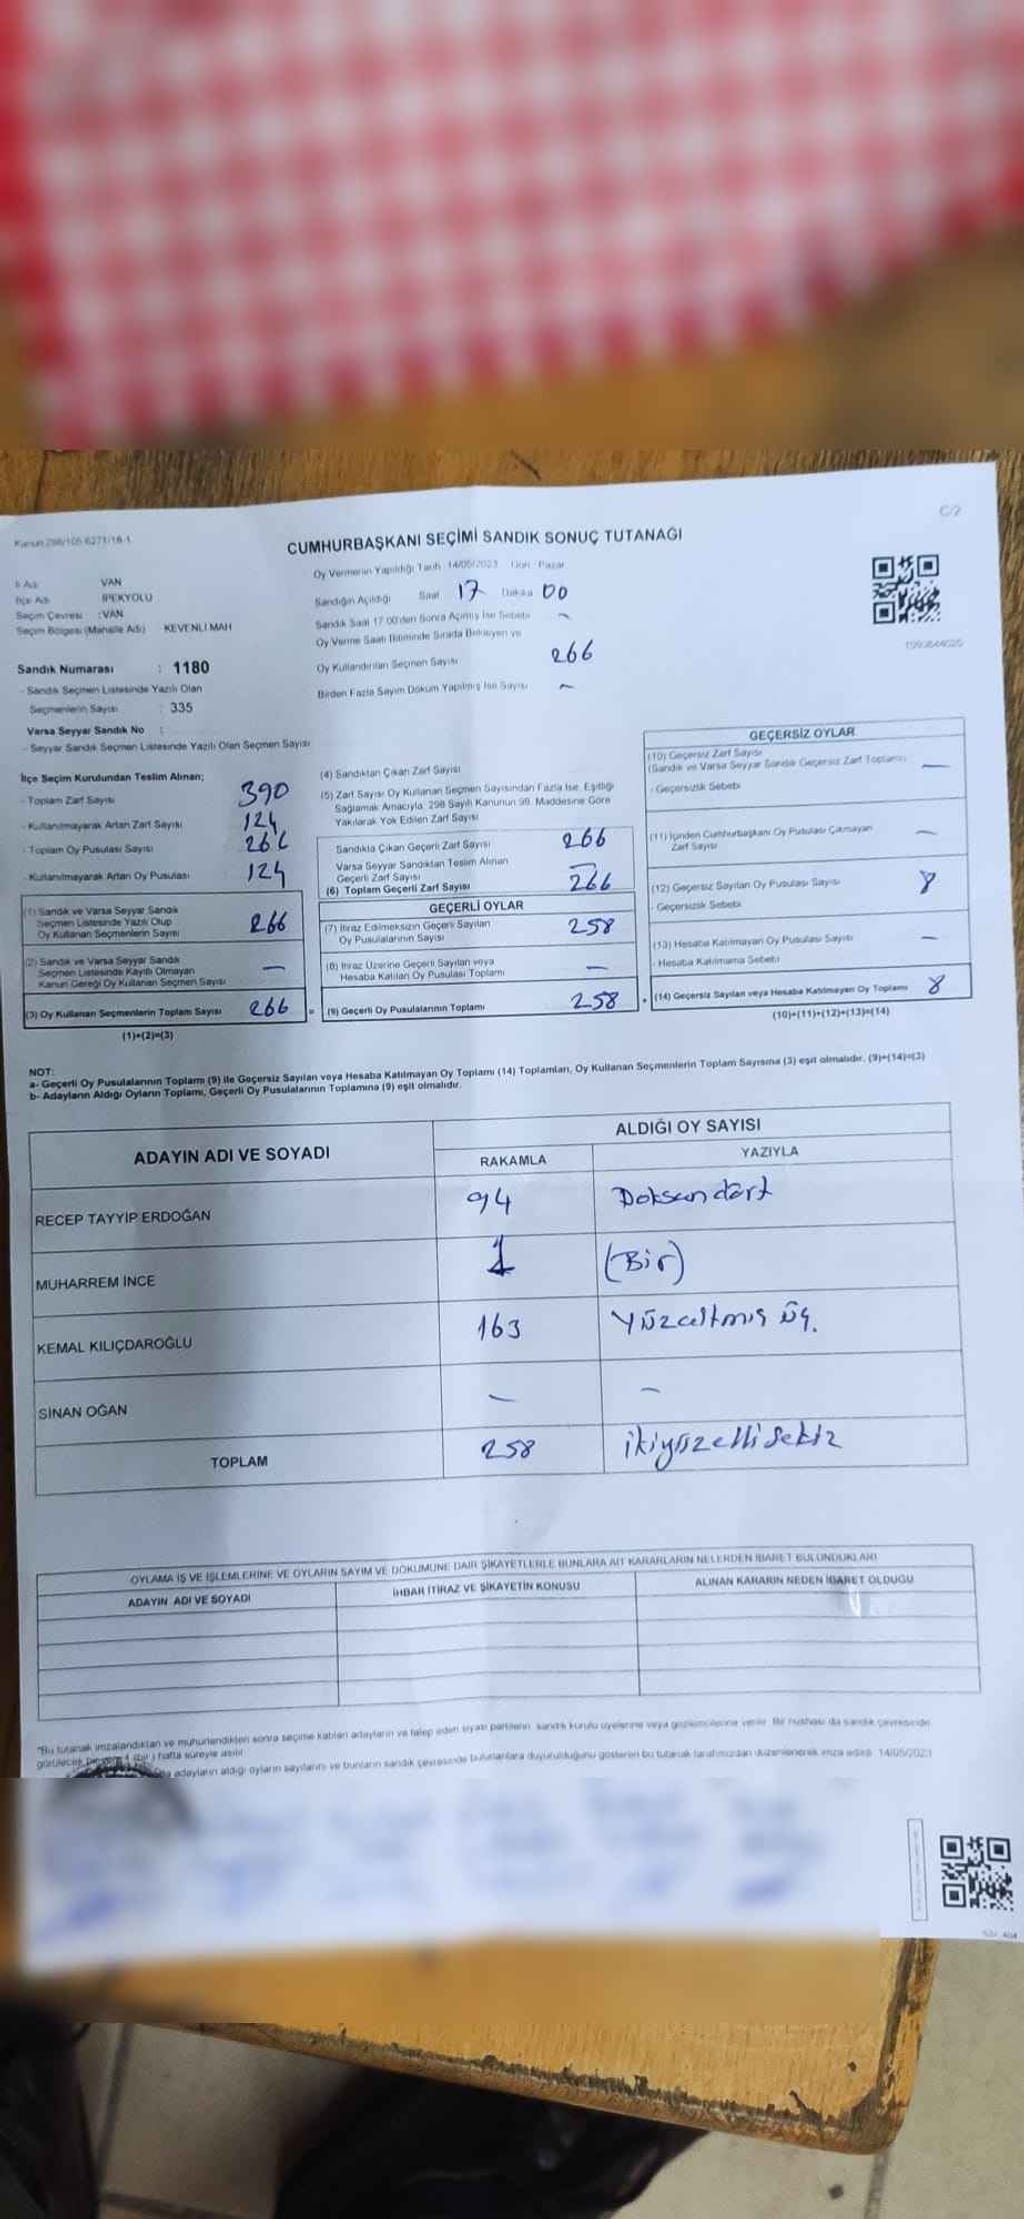 Kanun 298/105-6271/16-1
C/2
CUMHURBAŞKANI SEÇİMİ SANDIK SONUÇ TUTANAĞI
İl Adı VAN
İlçe Adı İPEKYOLU
Seçim Çevresi : VAN
Seçim Bölgesi (Mahalle Adı) KEVENLİ MAH
Oy Vermenin Yapıldığı Tarih 14/05/2023 Gün : Pazar
Sandığın Açıldığı Saat 17 Dakika 00
Sandık Saat 17.00'den Sonra Açılmış İse Sebebi -
Oy Verme Saati Bitiminde Sırada Bekleyen ve
Oy Kullandırılan Seçmen Sayısı 266
Birden Fazla Sayım Döküm Yapılmış İse Sayısı -
Sandık Numarası : 1180
- Sandık Seçmen Listesinde Yazılı Olan
Seçmenlerin Sayısı : 335
Varsa Seyyar Sandık No :
- Seyyar Sandık Seçmen Listesinde Yazılı Olan Seçmen Sayısı
İlçe Seçim Kurulundan Teslim Alınan;
- Toplam Zarf Sayısı 390
- Kullanılmayarak Artan Zarf Sayısı 124
- Toplam Oy Pusulası Sayısı
- Kullanılmayarak Artan Oy Pusulası 124
(1) Sandık ve Varsa Seyyar Sandık
Seçmen Listesinde Yazılı Olup
Oy Kullanan Seçmenlerin Sayısı 266
(2) Sandık ve Varsa Seyyar Sandık
Seçmen Listesinde Kayıtlı Olmayan
Kanun Gereği Oy Kullanan Seçmen Sayısı -
(3) Oy Kullanan Seçmenlerin Toplam Sayısı 266
(1)+(2)=(3)
(4) Sandıktan Çıkan Zarf Sayısı
(5) Zarf Sayısı Oy Kullanan Seçmen Sayısından Fazla İse, Eşitliği
Sağlamak Amacıyla, 298 Sayılı Kanunun 98. Maddesine Göre
Yakılarak Yok Edilen Zarf Sayısı
Sandıkta Çıkan Geçerli Zarf Sayısı 266
Varsa Seyyar Sandıktan Teslim Alınan
Geçerli Zarf Sayısı -
(6) Toplam Geçerli Zarf Sayısı 266
GEÇERLİ OYLAR
(7) İtiraz Edilmeksizin Geçerli Sayılan
Oy Pusulalarının Sayısı 258
(8) İtiraz Üzerine Geçerli Sayılan veya
Hesaba Katılan Oy Pusulası Toplamı -
= (9) Geçerli Oy Pusulalarının Toplamı 258
GEÇERSİZ OYLAR
(10) Geçersiz Zarf Sayısı
(Sandık ve Varsa Seyyar Sandık Geçersiz Zarf Toplamı) -
- Geçersizlik Sebebi
(11) İçinden Cumhurbaşkanı Oy Pusulası Çıkmayan
Zarf Sayısı -
(12) Geçersiz Sayılan Oy Pusulası Sayısı 8
- Geçersizlik Sebebi
(13) Hesaba Katılmayan Oy Pusulası Sayısı -
- Hesaba Katılmama Sebebi
+ (14) Geçersiz Sayılan veya Hesaba Katılmayan Oy Toplamı 8
(10)+(11)+(12)+(13)=(14)
NOT:
a- Geçerli Oy Pusulalarının Toplamı (9) ile Geçersiz Sayılan veya Hesaba Katılmayan Oy Toplamı (14) Toplamları, Oy Kullanan Seçmenlerin Toplam Sayısına (3) eşit olmalıdır, (9)+(14)=(3)
b- Adayların Aldığı Oyların Toplamı, Geçerli Oy Pusulalarının Toplamına (9) eşit olmalıdır.
ADAYIN ADI VE SOYADI ALDIĞI OY SAYISI
RAKAMLA YAZIYLA
RECEP TAYYİP ERDOĞAN 94 Doksandört
MUHARREM İNCE 1 (Bir)
KEMAL KILIÇDAROĞLU 163 Yüzaltmış üç.
SİNAN OĞAN - -
TOPLAM 258 ikiyüzellisekiz
OYLAMA İŞ VE İŞLEMLERİNE VE OYLARIN SAYIM VE DÖKÜMÜNE DAİR ŞİKAYETLERLE BUNLARA AİT KARARLARIN NELERDEN İBARET BULUNDUKLARI
ADAYIN ADI VE SOYADI İHBAR İTİRAZ VE ŞİKAYETİN KONUSU ALINAN KARARIN NEDEN İBARET OLDUĞU
"Bu tutanak imzalandıktan ve mühürlendikten sonra seçime katılan adayların ve talep eden siyasi partilerin sandık kurulu üyelerine veya gözlemcilerine verilir. Bir nüshası da sandık çevresinde
görülecek bir yere 1 (bir) hafta süreyle asılır.
adayların aldığı oyların sayılarını ve bunların sandık çevresinde bulunanlara duyurulduğunu gösteren bu tutanak tarafımızdan düzenlenerek imza edildi. 14/05/2023